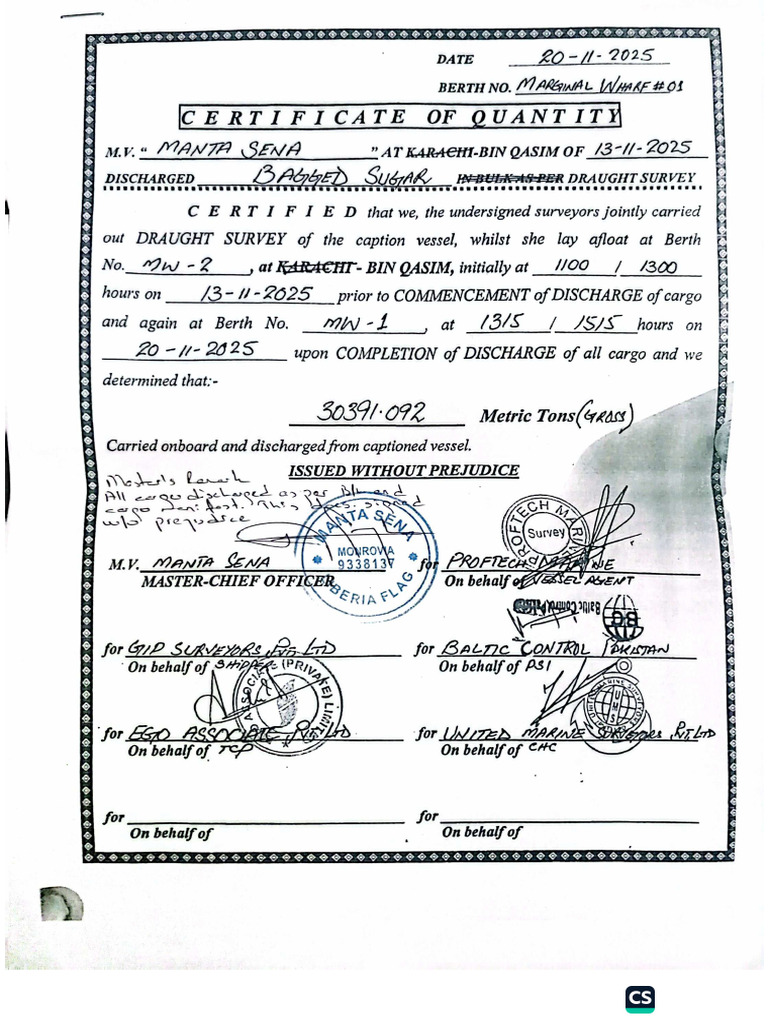 DATE 20-11-2025
BERTH NO. MARGINAL WHARF # 01
CERTIFICATE OF QUANTITY
M.V. “ MANTA SENA ” AT KARACHI-BIN QASIM OF 13-11-2025
DISCHARGED BAGGED SUGAR IN BULK AS PER DRAUGHT SURVEY
CERTIFIED that we, the undersigned surveyors jointly carried
out DRAUGHT SURVEY of the caption vessel, whilst she lay afloat at Berth
No. MW-2, at KARACHI - BIN QASIM, initially at 1100 / 1300
hours on 13-11-2025 prior to COMMENCEMENT of DISCHARGE of cargo
and again at Berth No. MW-1, at 1315 / 1515 hours on
20-11-2025 upon COMPLETION of DISCHARGE of all cargo and we
determined that:-
30391.092 Metric Tons (GROSS)
Carried onboard and discharged from captioned vessel.
ISSUED WITHOUT PREJUDICE
Master's Remark
All cargo discharged as per B/L and
cargo manifest. This doc. signed
w/o prejudice
MANTA SENA
MONROVIA
9338137
LIBERIA FLAG
PROFTECH MARINE
Survey
M.V. MANTA SENA for PROFTECH MARINE
MASTER-CHIEF OFFICER On behalf of VESSEL AGENT
Baltic Control
BC
for GIP SURVEYORS, PVT LTD for BALTIC CONTROL PAKISTAN
On behalf of SHIPPER On behalf of PSI
ASSOCIATE (PRIVATE) LIMITED
UNITED MARINE SURVEYORS
UMS
for EGO ASSOCIATE PVT LTD for UNITED MARINE SURVEYORS PVT, LTD
On behalf of TCP On behalf of CHC
for for
On behalf of On behalf of
CS